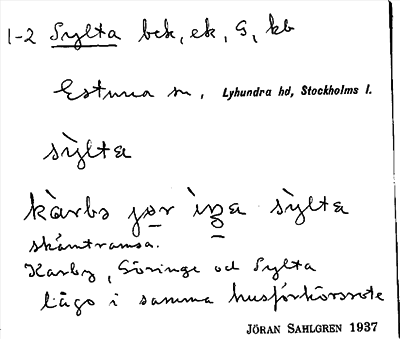 1-2 Sylta bck, ek, G, kb
Estuna sn, Lyhundra hd, Stockholms l.
sỳlta
kàrbs jør ìŋa sỳlta
skämtramsa.
Karby, Göringe och Sylta
lågo i samma husförhörsrote
JÖRAN SAHLGREN 1937